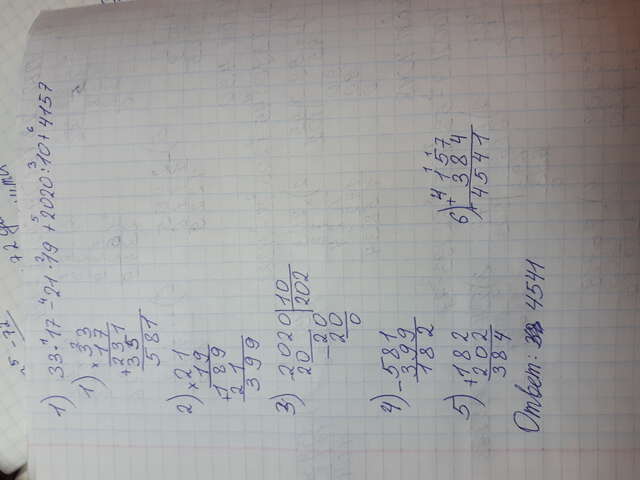 1) 33·17-21·19+2020:10+4157
1) ×33
17
+231
35
581
2) ×21
19
+189
21
399
3) 2020|10
20 |202
-20
20
0
4) -581
399
182
5) +182
202
384
6) +4157
384
4541
Ответ: 4541